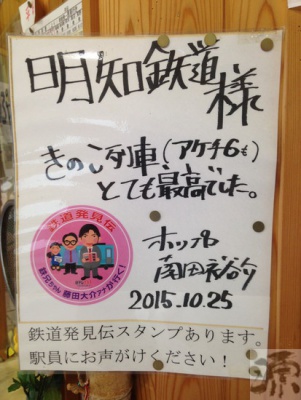 明知鉄道様
きのこ列車(アケチ6も)
とても最高でした。
鉄道発見伝
鉄兄ちゃん 藤田大介アナが行く!
ホリプロ
南田裕介
2015.10.25
鉄道発見伝スタンプあります。
駅員にお声がけください!